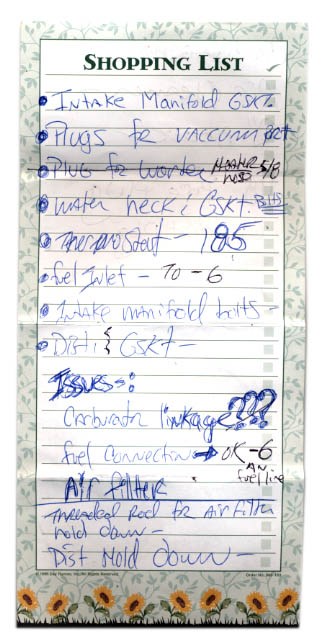 SHOPPING LIST
Intake Manifold GSKT.
Plugs for VACCUM PORT
PLUG for HEATER HOSE 5/8
WATER neck & GSKT. Bolts
Thermostat - 185
Fuel Inlet - TO -6
Intake manifold bolts -
Dist. & GSKT -
ISSUES:
Carburator linkage???
Fuel Connection → OK -6
AN
fuel line
Air filter
Threaded Rod for Air Filter
hold down -
Dist Hold down -